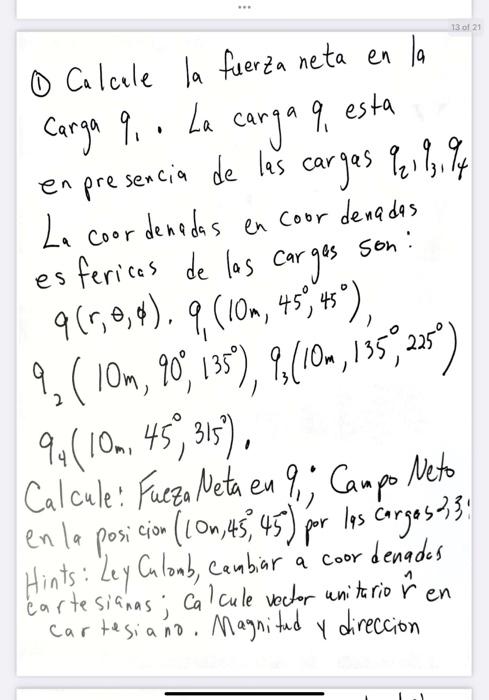 13 of 21
① Calcule la fuerza neta en la
Carga q₁. La carga q₁ esta
en presencia de las cargas q₂, q₃, q₄
La coordenadas en coordenadas
esfericas de las cargas son:
q(r,θ,ϕ). q₁(10m, 45°, 45°),
q₂(10m, 90°, 135°), q₃(10m, 135°, 225°)
q₄(10m, 45°, 315°).
Calcule: Fueza Neta en q₁; Campo Neto
en la posicion (10m, 45°, 45°) por las cargas
Hints: Ley Culomb, cambiar a coordenadas
cartesianas; Calcule vector unitario r̂ en
cartesiano. Magnitud y direccion